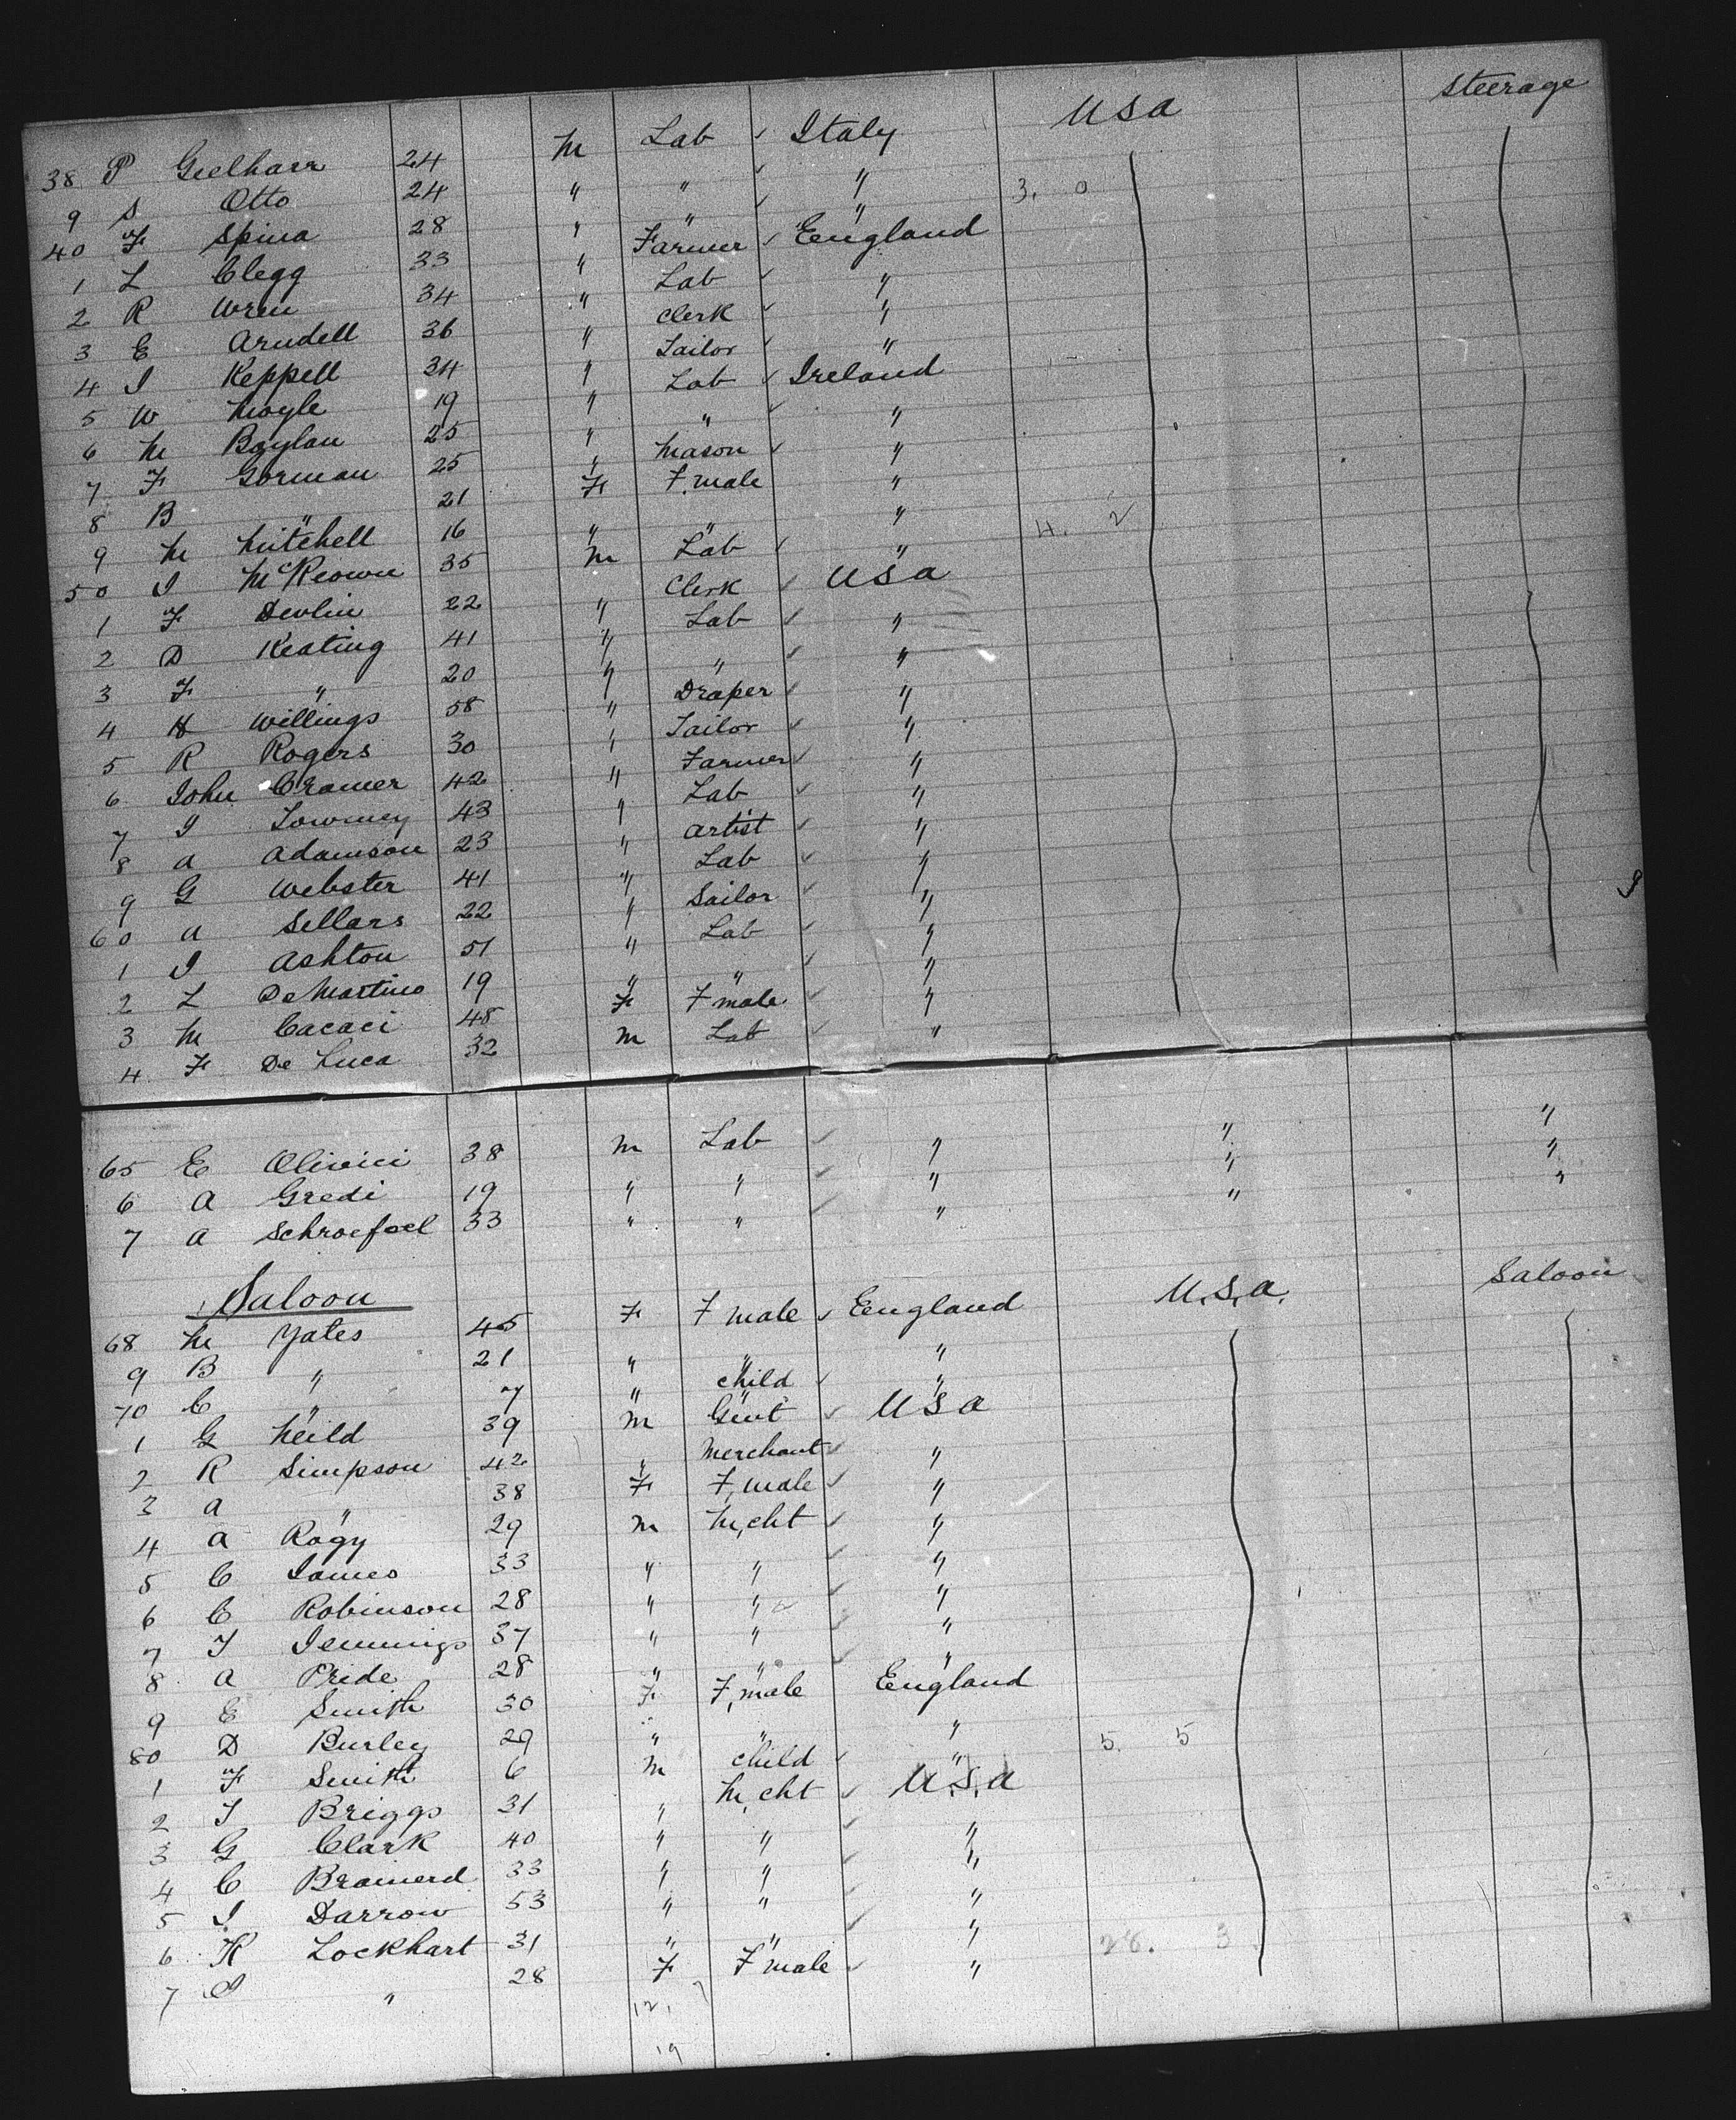 38 P Gielharr 24 m Lab Italy USA Steerage
9 S Otto 24 " " " 3. 0
40 F Spina 28 " " "
1 L Clegg 33 " Farmer England
2 R Wren 34 " Lab "
3 E Arudell 36 " Clerk "
4 J Keppell 34 " Tailor "
5 W Moyle 19 " Lab Ireland
6 M Boylan 25 " " "
7 F Gorman 25 " Mason "
8 B " 21 F F.male "
9 M Mitchell 16 " " " 4. 2
50 J McKeown 35 m Lab "
1 F Devlin 22 Clerk USA
2 D Keating 41 " Lab "
3 F " 20 " " "
4 H Willings 58 " Draper "
5 R Rogers 30 " Tailor "
6 John Cramer 42 " Farmer "
7 J Lowney 43 " Lab "
8 A Adamson 23 " Artist "
9 G Webster 41 " Lab "
60 A Sellars 22 " Sailor "
1 J Ashton 51 " Lab "
2 L DeMartino 19 " " "
3 M Cacaci 48 F F male "
4 F De Luca 32 m Lab "
65 E Olivici 38 m Lab " " "
6 A Gredi 19 " " " " "
7 A Schroefoel 33 " " " " "
Saloon
68 M Yates 45 F F male England U.S.A. Saloon
9 B " 21 " " "
70 C " 7 " child "
1 G Neild 39 m Gent USA
2 R Simpson 42 " Merchant "
3 A " 38 F F,male "
4 A Rogy 29 m M,cht "
5 C James 33 " " "
6 C Robinson 28 " " "
7 T Jennings 37 " " "
8 A Pride 28 " " "
9 E Smith 30 F F,male England
80 D Burley 29 " " " 5. 5
1 F Smith 6 m child "
2 T Briggs 31 " M,cht U.S.A
3 G Clark 40 " " "
4 C Brainerd 33 " " "
5 J Darrow 53 " " "
6 K Lockhart 31 " " " 28. 3
7 " 28 F F male "
12.
19